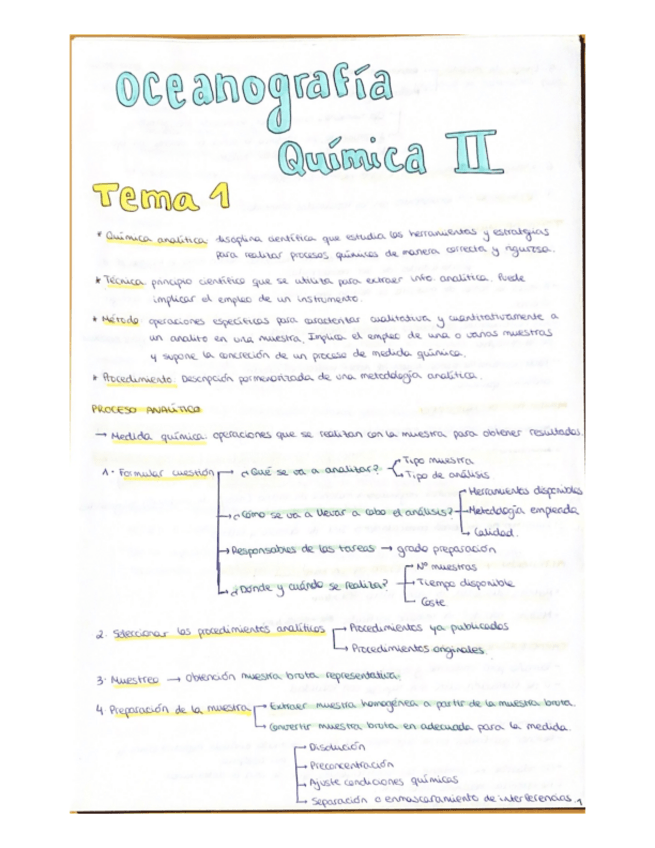 Oceanografía
Química II
Tema 1
* Química analítica: disciplina científica que estudia las herramientas y estrategias
para realizar procesos químicos de manera correcta y rigurosa.
* Técnica: principio científico que se utiliza para extraer info. analítica. Puede
implicar el empleo de un instrumento.
* Método: operaciones específicas para caracterizar cualitativa y cuantitativamente a
un analito en una muestra. Implica el empleo de una o varias muestras
y supone la concreción de un proceso de medida química.
* Procedimiento: Descripción pormenorizada de una metodología analítica.
PROCESO ANALÍTICO
→ Medida química: operaciones que se realizan con la muestra para obtener resultados.
1. Formular cuestión → ¿Qué se va a analizar? Tipo muestra
Tipo de análisis
→ ¿Cómo se va a llevar a cabo el análisis? Herramientas disponibles
Metodología empleada
Calidad.
→ Responsables de las tareas → grado preparación
→ ¿Dónde y cuándo se realiza? Nº muestras
Tiempo disponible
Coste
2. Seleccionar los procedimientos analíticos → Procedimientos ya publicados
→ Procedimientos originales.
3. Muestreo → Obtención muestra bruta representativa.
4. Preparación de la muestra → Extraer muestra homogénea a partir de la muestra bruta.
→ Convertir muestra bruta en adecuada para la medida.
→ Disolución
→ Preconcentración
→ Ajuste condiciones químicas
→ Separación o enmascaramiento de interferencias.
1